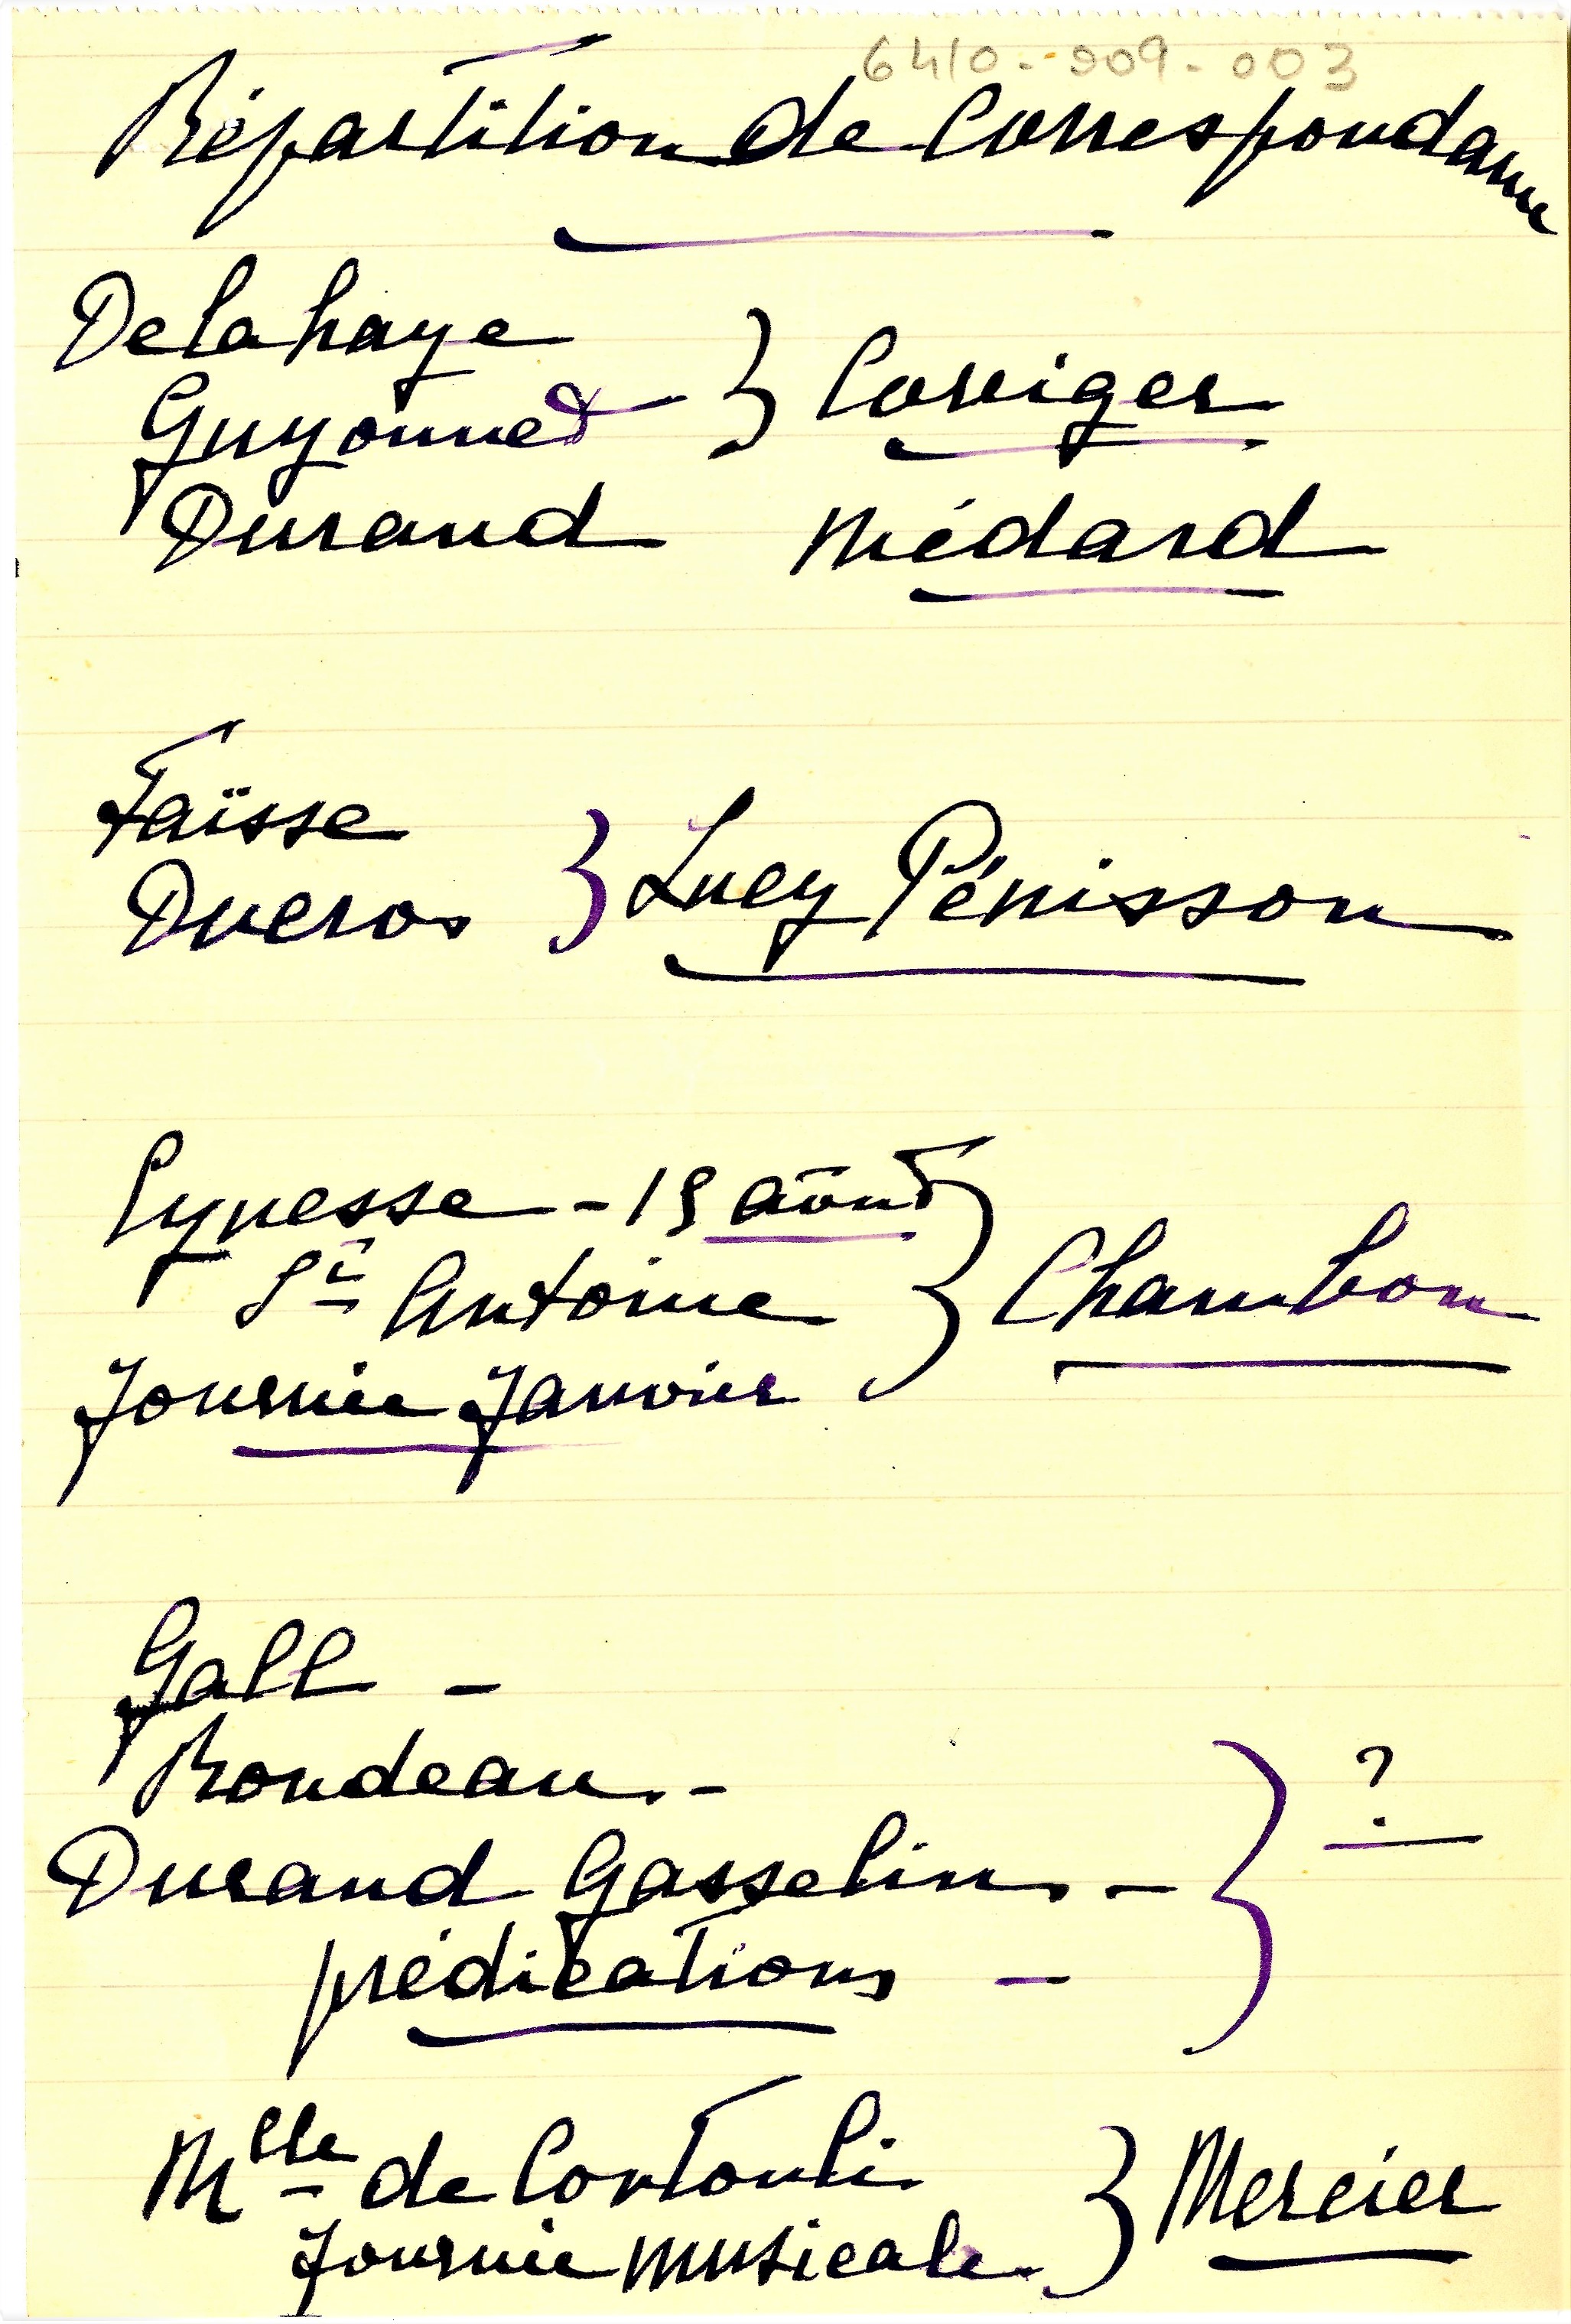 6410-209-003
Répartition de Correspondance
Delahaye
Guyonnet } Corriger
Durand Médard
Faïsse
Ducros } Lucy Pénisson
Eynesse - 15 août
St Antoine } Chambon
Journée Janvier
Gall -
Rondeau. -
Durand Gasselin. - } ?
prédications -
Mlle de Contouli } Mercier
Journée musicale.